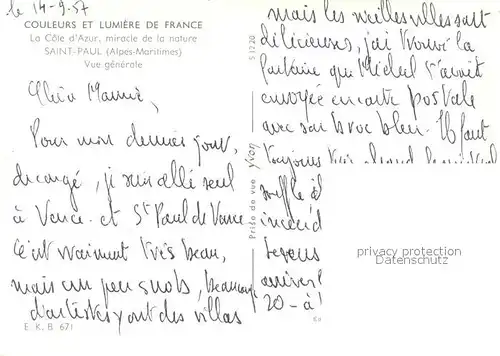 le 14-9-57
COULEURS ET LUMIÈRE DE FRANCE
La Côte d'Azur, miracle de la nature
SAINT-PAUL (Alpes-Maritimes)
Vue générale
Maurice,
Pour mon dernier jour,
de congé, je suis allé seul
à Vence et St Paul de Vence
C'est vraiment très beau,
mais un peu snob, beaucoup
d'artistes y ont des villas
E. K. B 671
S 1220
Prise de vue yvon
mais les vieilles villes sont
délicieuses, j'ai trouvé la
fontaine que Michel t'avait
envoyée en carte postale
avec son broc bleu. Il faut
toujours très
20 - à
privacy protection
Datenschutz